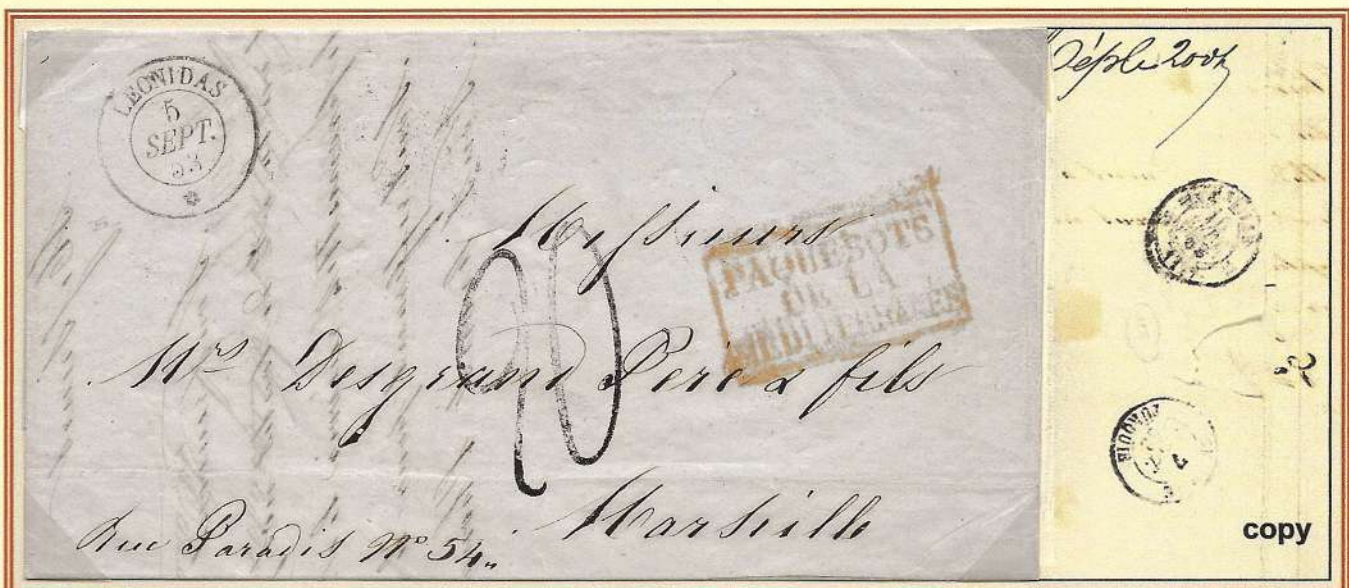 LEONIDAS
5
SEPT.
53
Messieurs
PAQUEBOTS
DE LA
MEDITERRANEE
20
Mrs Desgrand Père & fils
Marseille
Rue Paradis No 54
TURQUIE
7
copy